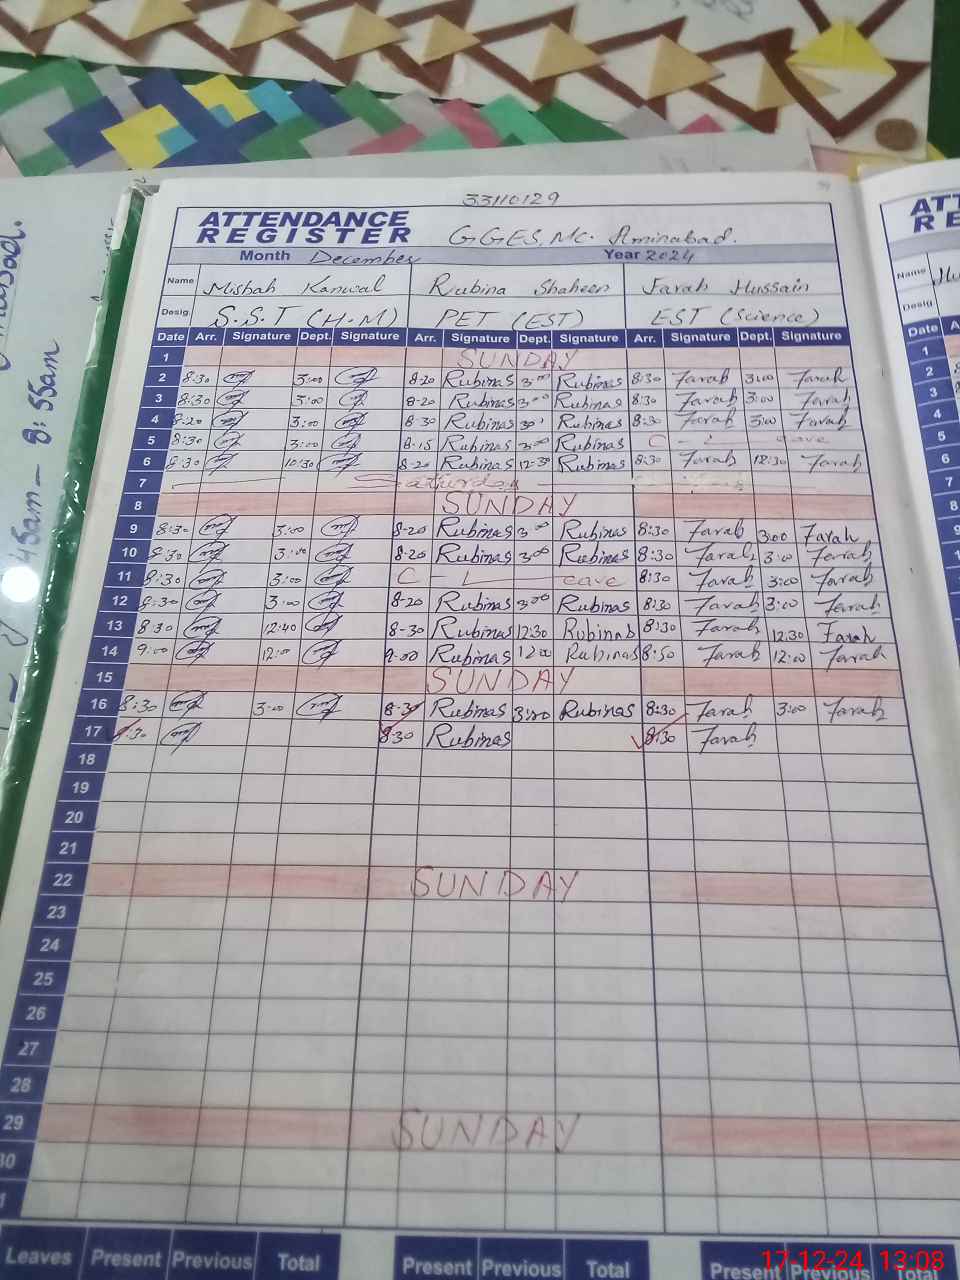 33110129
ATTENDANCE
REGISTER
GGES, MC. Aminabad.
Month December Year 2024
Name Misbah Kanwal Rubina Shaheen Farah Hussain
Desig. S.S.T (H.M) PET (EST) EST (Science)
Date Arr. Signature Dept. Signature Arr. Signature Dept. Signature Arr. Signature Dept. Signature
1 SUNDAY
2 8:30 3:00 8-20 Rubinas 3:00 Rubinas 8:30 Farah 3:00 Farah
3 8:30 3:00 8-20 Rubinas 3:00 Rubinas 8:30 Farah 3:00 Farah
4 8:20 3:00 8-30 Rubinas Rubinas 8:30 Farah 3:00 Farah
5 8:30 3:00 8-15 Rubinas 3:00 Rubinas C - Leave
6 8:30 10:30 8-20 Rubinas 12:30 Rubinas 8:30 Farah 12:30 Farah
7 Saturday
8 SUNDAY
9 8:30 3:00 8-20 Rubinas 3:00 Rubinas 8:30 Farah 3:00 Farah
10 8:30 3:00 8-20 Rubinas 3:00 Rubinas 8:30 Farah 3:00 Farah
11 8:30 3:00 C - Leave 8:30 Farah 3:00 Farah
12 8:30 3:00 8-20 Rubinas 3:00 Rubinas 8:30 Farah 3:00 Farah
13 8:30 12:40 8-30 Rubinas 12:30 Rubinas 8:30 Farah 12:30 Farah
14 9:00 12:00 9-00 Rubinas 12:00 Rubinas 8:50 Farah 12:00 Farah
15 SUNDAY
16 8:30 3:00 8-30 Rubinas 3:00 Rubinas 8:30 Farah 3:00 Farah
17 8:30 8:30 Rubinas 8:30 Farah
18
19
20
21
22 SUNDAY
23
24
25
26
27
28
29 SUNDAY
30
Leaves Present Previous Total Present Previous Total Present Previous Total
17-12-24 13:08
45am - 8:55am
ATT
RE
Name
Desig.
Date A
1
2
3
4
5
6
7
8